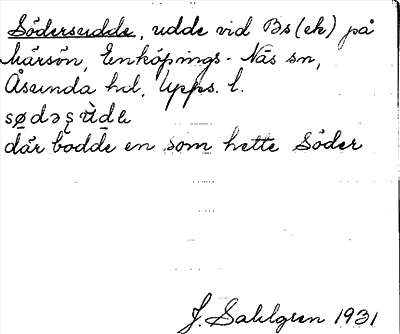 Södersudde, udde vid Bs (ek) på
Mårsön, Enköpings-Näs sn,
Åsunda hd, Upps. l.
där bodde en som hette Söder
J. Sahlgren 1931